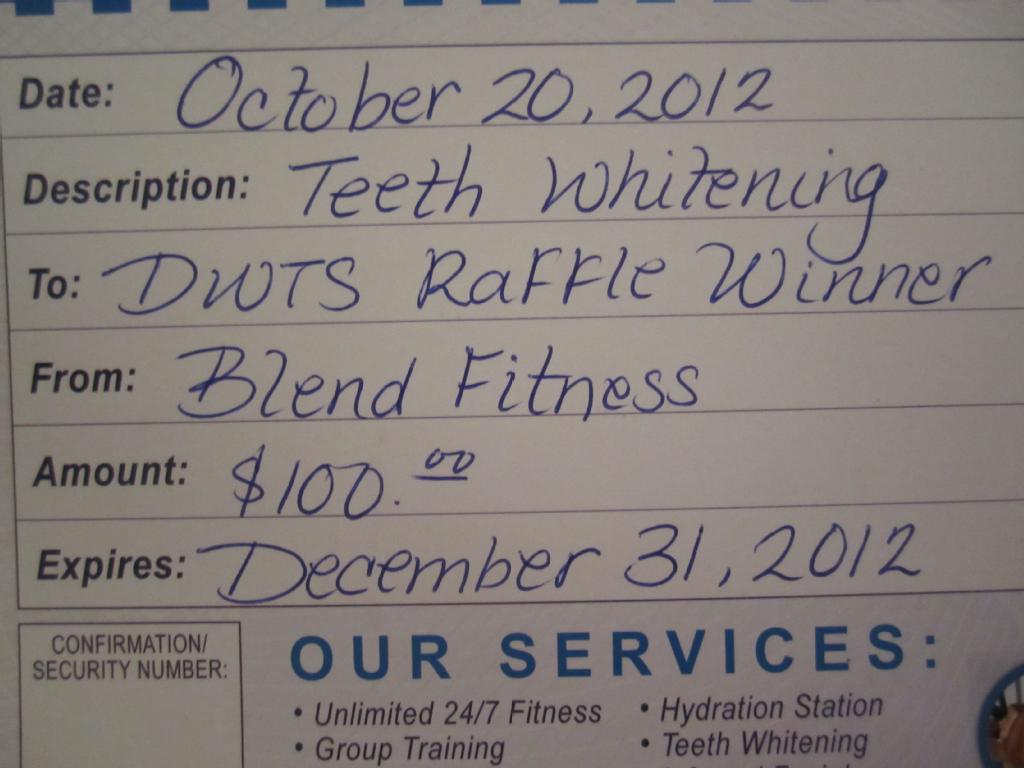 Date: October 20, 2012
Description: Teeth Whitening
To: DWTS Raffle Winner
From: Blend Fitness
Amount: $100.00
Expires: December 31, 2012
CONFIRMATION/
SECURITY NUMBER:
OUR SERVICES:
• Unlimited 24/7 Fitness
• Group Training
• Hydration Station
• Teeth Whitening